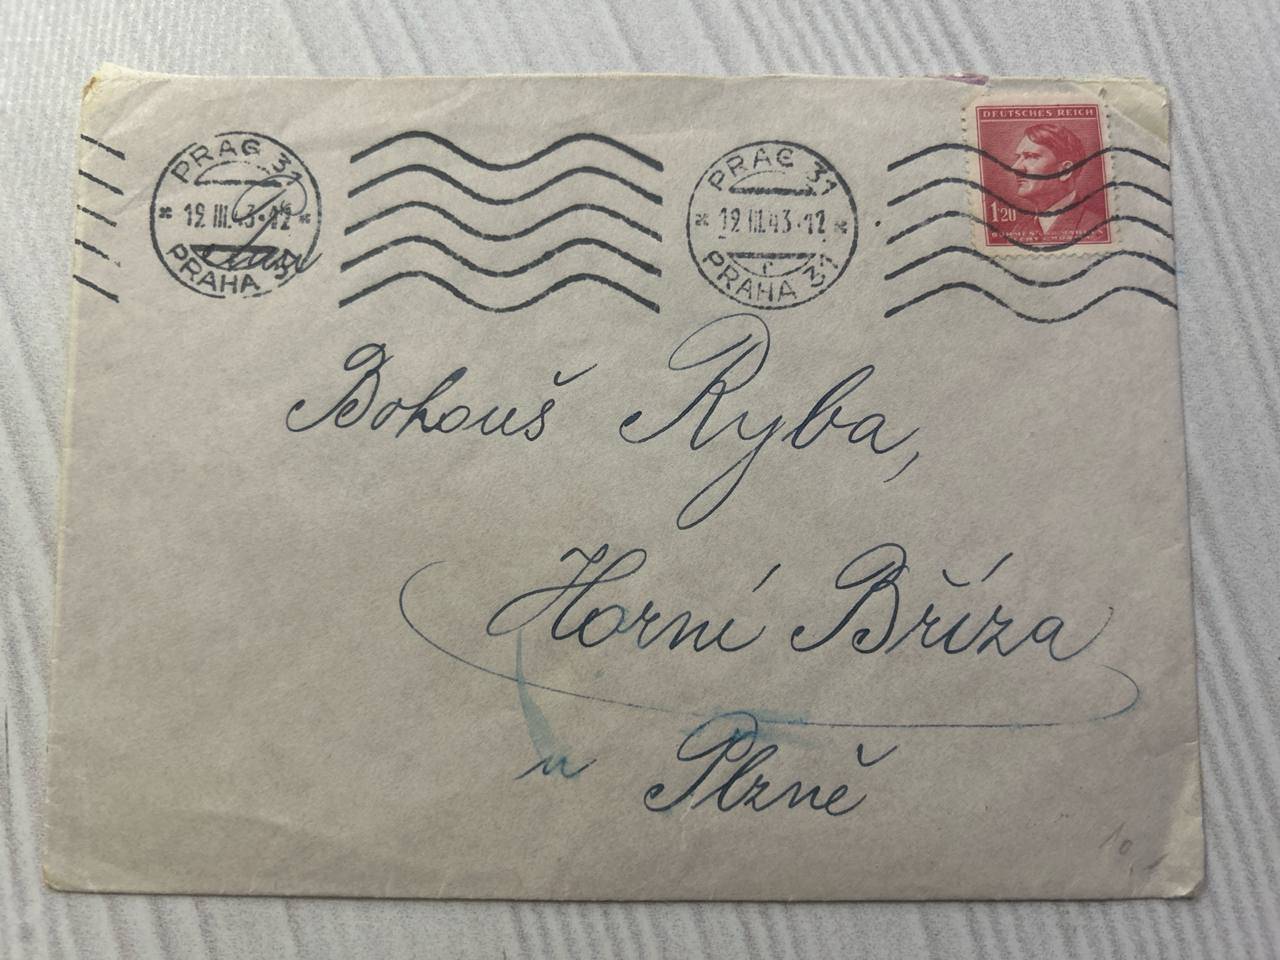 PRAG 31
19.III.43.-12
PRAHA 31
PRAG 31
19.III.43.-12
c
PRAHA 31
DEUTSCHES REICH
1.20
BÖHMEN UND MÄHREN
ČECHY A MORAVA
Bohouš Ryba,
Horní Bříza
u Plzně
10